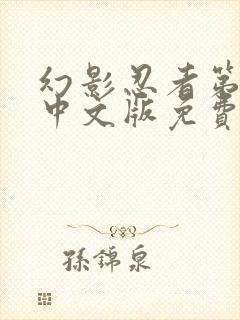 幻影忍者第
中文版免費
孫錦泉